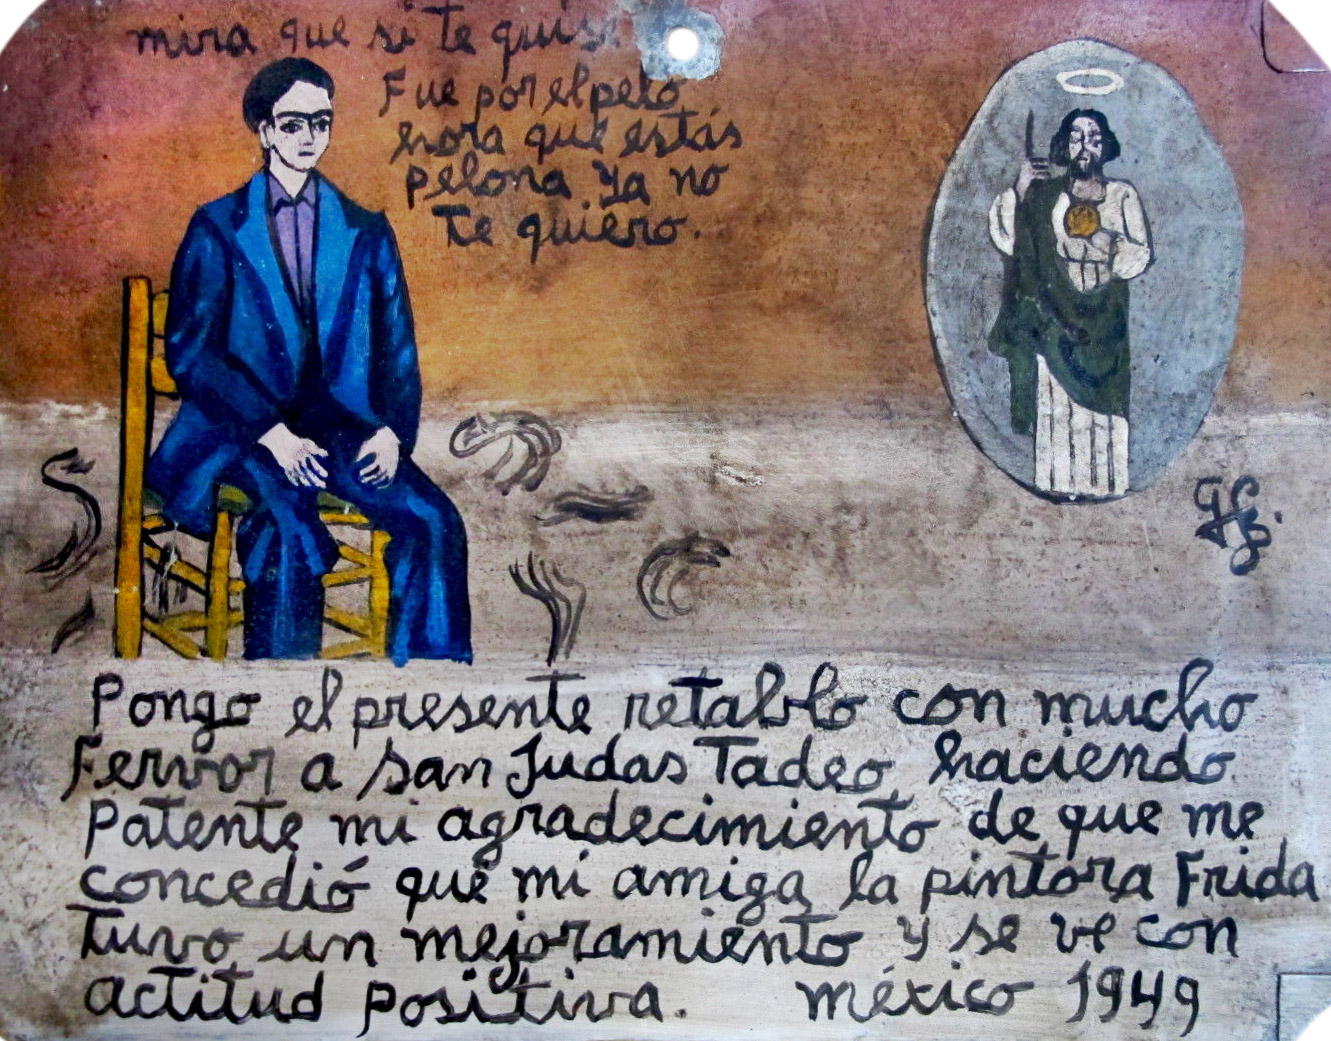 mira que si te quis
Fue por el pelo
hora que estás
pelona ya no
te quiero.
Pongo el presente retablo con mucho
Fervor a San Judas Tadeo haciendo
Patente mi agradecimiento de que me
concedió que mi amiga la pintora Frida
Tuvo un mejoramiento y se ve con
actitud positiva. México 1949